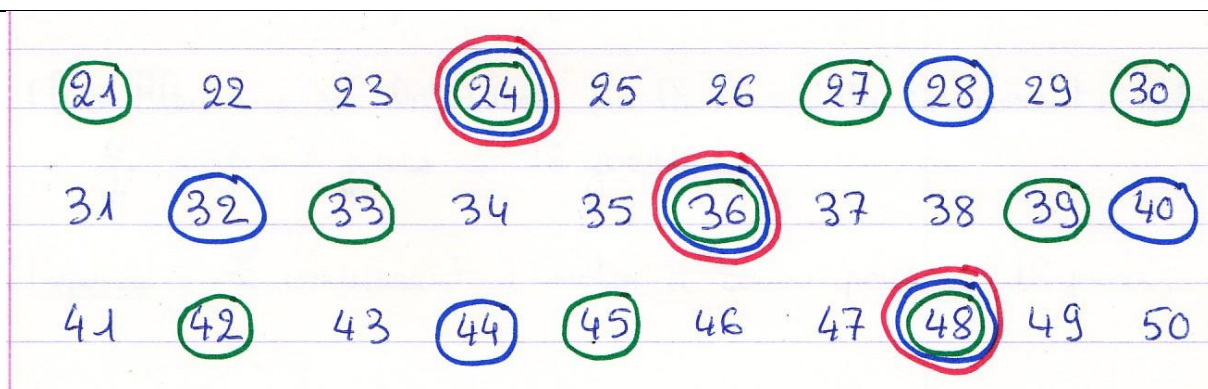 21 22 23 24 25 26 27 28 29 30
31 32 33 34 35 36 37 38 39 40
41 42 43 44 45 46 47 48 49 50